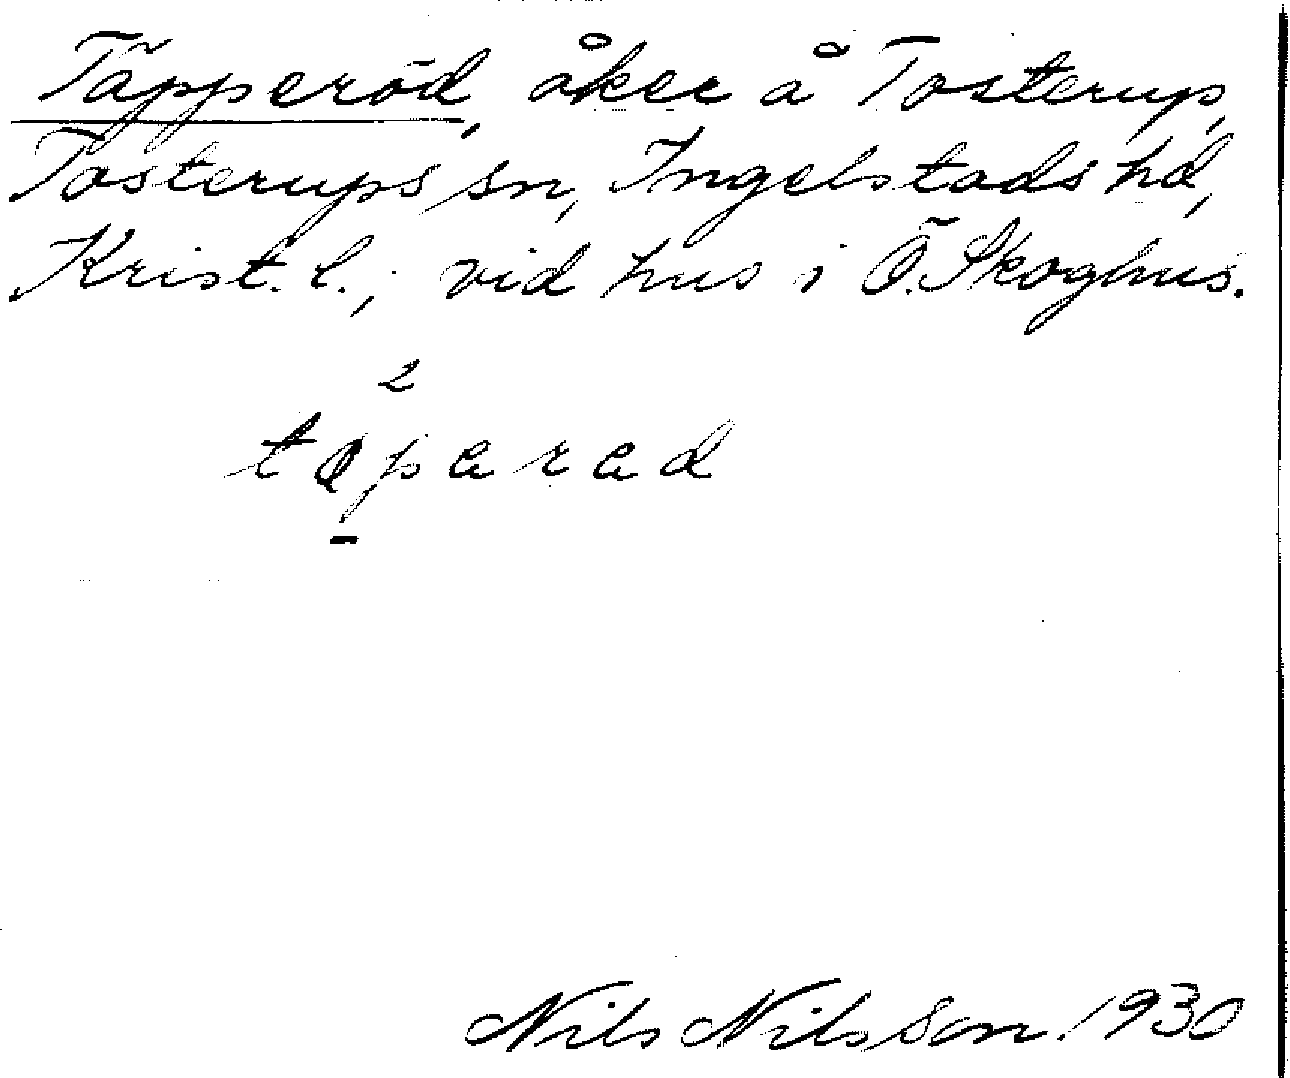 Täpperöd, åker å Tosterup,
Tosterups sn, Ingelstads hd,
Krist. l.; vid hus i Ö. Skoghus.
2
Nils Nilsson. 1930